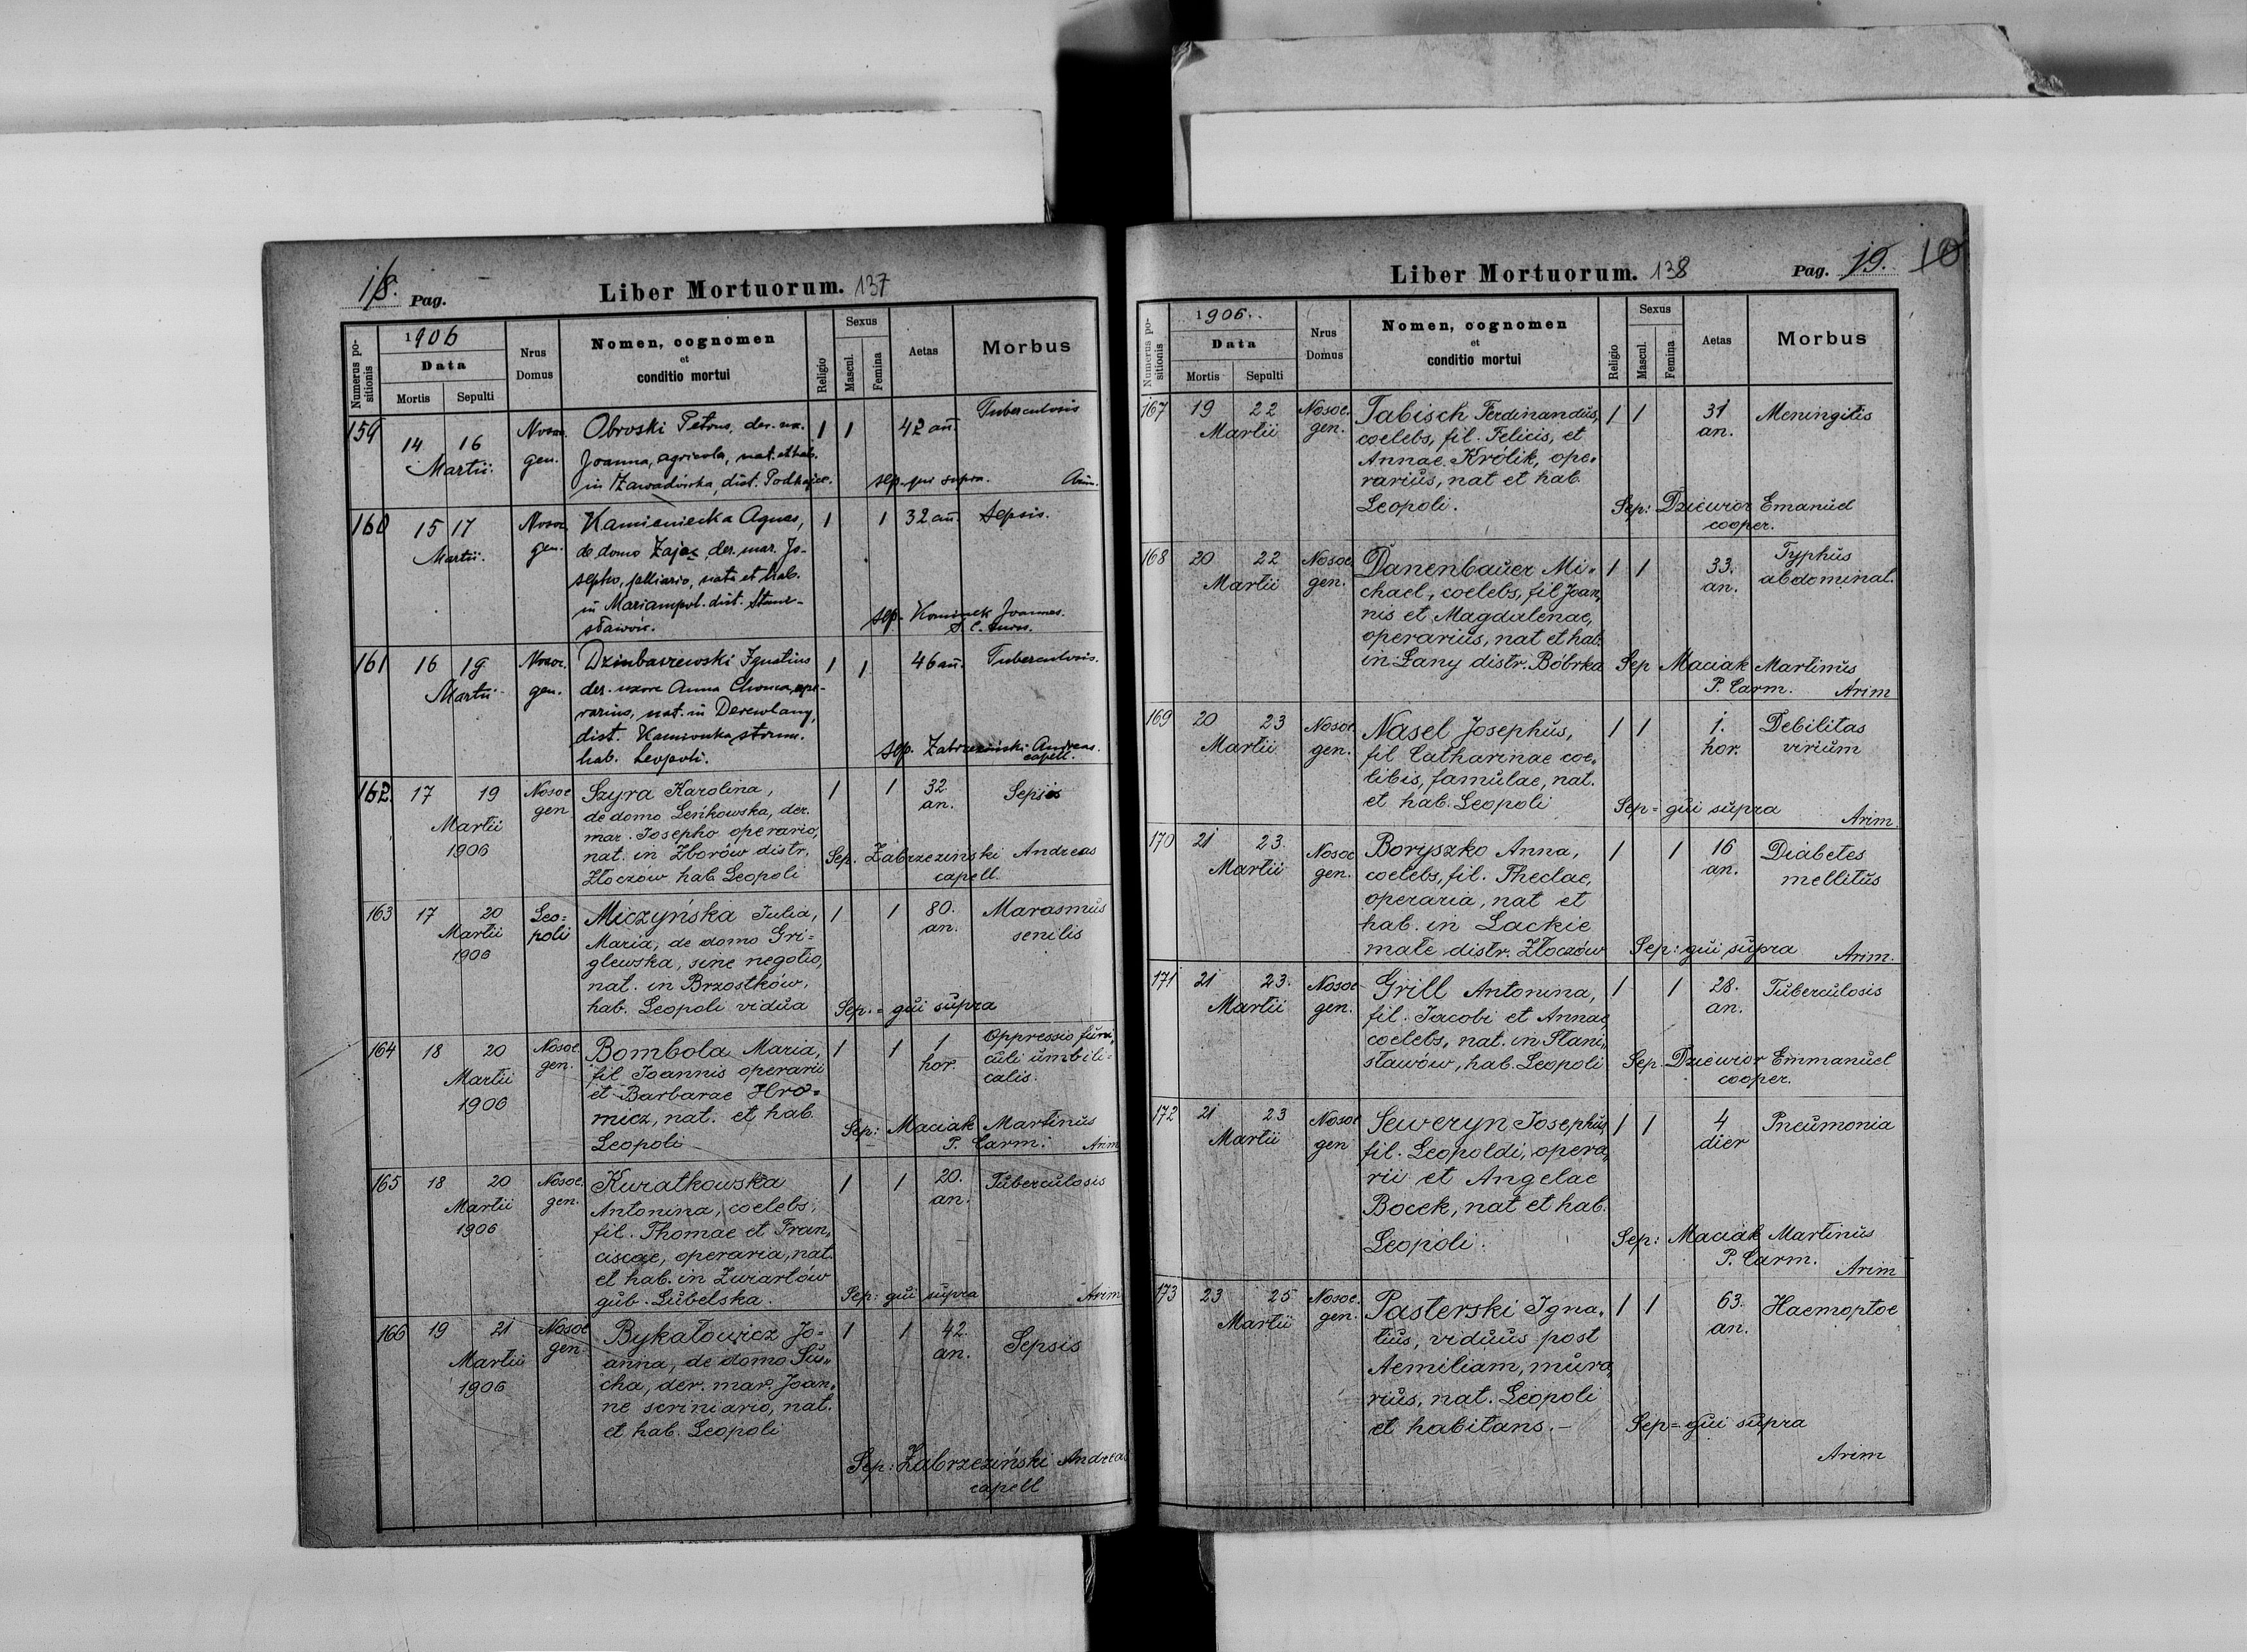 18. Pag. Liber Mortuorum. 137
Numerus positionis
1906
Data
Mortis Sepulti
Nrus Domus
Nomen, cognomen
et
conditio mortui
Religio
Sexus
Mascul. Femina
Aetas
Morbus
159 14 16 Martii Nosoc. gen.
Obroski Petrus, der. ux.
Joanna, agricola, nat. et hab.
in Zawadówka, dist. Podhajce.
1 1 42 an. Tuberculosis
sep. qui supra. Arim.
160 15 17 Martii. Nosoc. gen.
Kamieniecka Agnes,
de domo Zając, der. mar. Jo-
sepho, pelliario, nata et hab.
in Mariampol. dist. Stani-
sławów.
1 1 32 an. Sepsis.
sep. Kominek Joannes.
161 16 19 Martii Nosoc. gen.
Dziubaszewski Ignatius
der. uxore Anna Choma, ope-
rarius, nat. in Derewlany,
dist. Kamionka strum.
hab. Leopoli.
1 1 46 an. Tuberculosis.
sep. Zabrzeziński Andreas.
capell.
162. 17 19 Martii 1906 Nosoc gen
Szyra Karolina,
de domo Leńkowska, der.
mar. Josepho operario,
nat. in Zborów distr.
Złoczów hab Leopoli
1 1 32 an. Sepsis
Sep. Zabrzeziński Andreas
capell.
163 17 20 Martii 1906 Leo=
poli
Miczyńska Julia,
Maria, de domo Gri=
glewska, sine negotio,
nat. in Brzostków,
hab. Leopoli vidua
1 1 80. an. Marasmus
senilis
Sep. = qui supra
164 18 20 Martii 1906 Nosoc. gen.
Bombola Maria,
fil Joannis operarii
et Barbarae Hro=
micz, nat. et hab.
Leopoli
1 1 1 hor. Oppressio funi,
culi umbili=
calis.
Sep: Maciak Martinus
P. Carm. Arim
165 18 20 Martii 1906 Nosoc. gen.
Kuratkowska
Antonina, coelebs,
fil. Thomae et Fran,
ciscae, operaria, nat.
et hab. in Zwiartów
gub. Lubelska.
1 1 20. an. Tuberculosis
Sep: qui supra Arim
166 19 21 Martii 1906 Nosoc gen
Bykałowicz Jo=
anna, de domo Su„
cha, der. mar. Joan„
ne scriniario, nat.
et hab. Leopoli
1 1 42. an. Sepsis
Sep: Zabrzeziński Andreas
capell
Liber Mortuorum. 138 Pag. 19. 10
Numerus positionis
1906.
Data
Mortis Sepulti
Nrus Domus
Nomen, cognomen
et
conditio mortui
Religio
Sexus
Mascul. Femina
Aetas
Morbus
167 19 22 Martii Nosoc. gen.
Tabisch Ferdinandus,
coelebs, fil. Felicis, et
Annae Królik, ope„
rarius, nat et hab
Leopoli.
1 1 31 an. Meningitis
Sep: Dziewior Emanuel
cooper.
168 20 22 Martii Nosoc gen.
Danenbauer Mi„
chael, coelebs, fil Joan„
nis et Magdalenae,
operarius, nat et hab.
in Łany distr. Bóbrka
1 1 33. an. Typhus
abdominal.
Sep Maciak Martinus
P. Carm. Arim
169 20 23 Martii Nosoc gen.
Nasel Josephus,
fil Catharinae coe„
libis, famulae, nat.
et hab. Leopoli
1 1 1. hor. Debilitas
virium
Sep = qui supra Arim.
170 21 23. Martii Nosoc gen.
Boryszko Anna,
coelebs, fil. Theclae,
operaria, nat et
hab. in Lackie
małe distr. Złoczów
1 1 16 an. Diabetes
mellitus
Sep: qui supra Arim.
171 21 23. Martii Nosoc gen.
Grill Antonina,
fil. Jacobi et Annae,
coelebs, nat. in Stani„
sławów, hab. Leopoli
1 1 28. an. Tuberculosis
Sep. Dziewior Emmanuel
cooper.
172 21 23 Martii Nosoc gen
Seweryn Josephus
fil. Leopoldi, opera„
rii et Angelae
Bocek, nat et hab.
Leopoli.
1 1 4 dier Pneumonia
Sep: Maciak Martinus
P. Carm. Arim
173 23 25 Martii Nosoc. gen.
Pasterski Igna„
tius, viduus post
Aemiliam, mura„
rius, nat. Leopoli
et habitans. —
1 1 63. an. Haemoptoe
Sep = qui supra
Arim